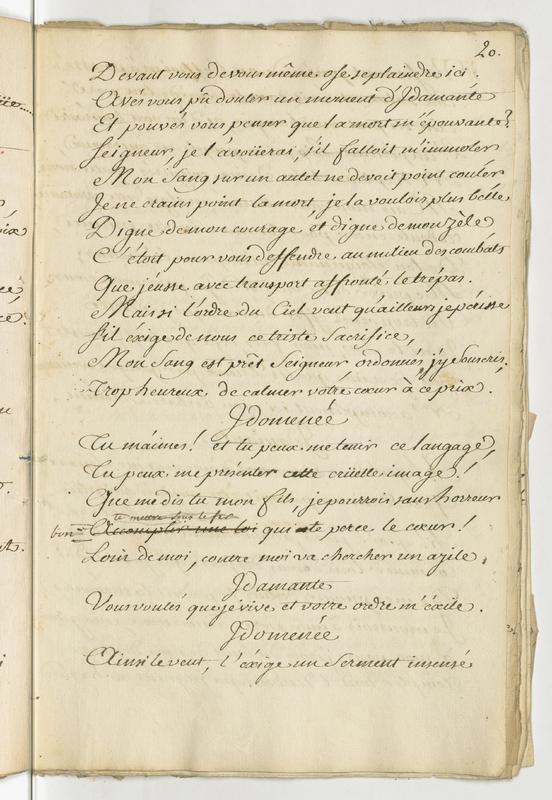 20.
Devant vous de vous même ose se plaindre ici.
Avés vous pû douter un moment d'Idamante
Et pouvés vous penser que la mort m'épouvante?
Seigneur, je l'avoüerai, s'il falloit m'immoler
Mon Sang sur un autel ne devoit point couler
Je ne crains point la mort, je la voulois plus belle
Digne de mon courage et digne de mon zèle
C'étoit pour vous deffendre au milieu des combats
Que j'eusse avec transport affronté le trépas.
Mais si l'ordre du Ciel veut qu'ailleurs je périsse
S'il éxige de nous ce triste Sacrifice,
Mon Sang est prêt Seigneur, ordonnés, j'y Souscris,
Trop heureux de calmer votre cœur à ce prix.
Idomenée
Tu m'aimes! et tu peux me tenir ce langage,
Tu peux me présenter cette crüelle image!
Que me dis tu mon fils, je pourrois sans horreur
te mettre sous le fer
bon Accomplir une loi qui te perce le cœur!
Loin de moi, contre moi va chercher un azile,
Idamante
Vous voulés que je vive et votre ordre m'éxile.
Idomenée
Ainsi le veut, l'éxige un Serment insensé